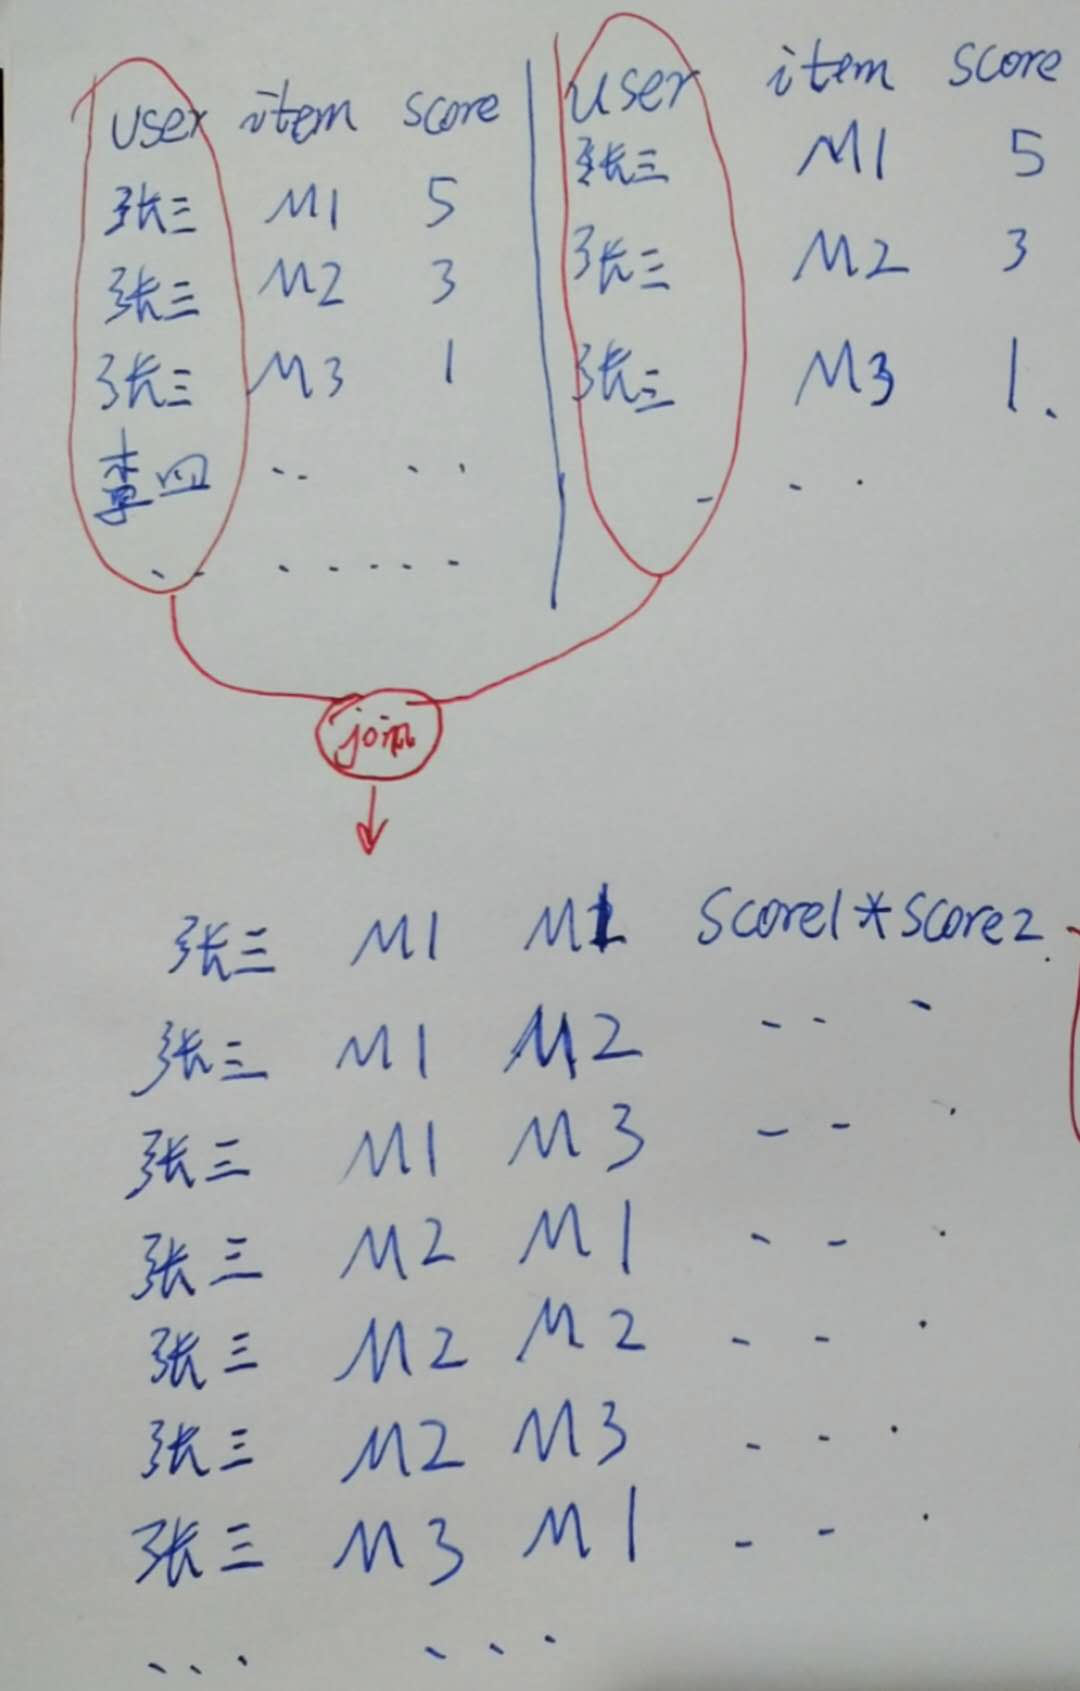 user item score
张三 M1 5
张三 M2 3
张三 M3 1
李四 .. ..
.. .....
user item score
张三 M1 5
张三 M2 3
张三 M3 1.
- - .
join
张三 M1 M1 score1*score2.
张三 M1 M2 - - -
张三 M1 M3 - - .
张三 M2 M1 - - .
张三 M2 M2 - - .
张三 M2 M3 - - .
张三 M3 M1 - - .
... ...